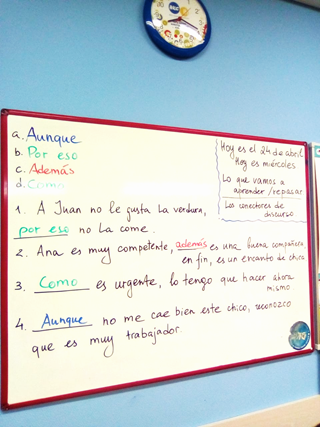 a. Aunque
b. Por eso
c. Además
d. Como
Hoy es el 24 de abril
Hoy es miércoles
Lo que vamos a
aprender / repasar
Los conectores de
discurso
1. A Juan no le gusta la verdura,
por eso no la come.
2. Ana es muy competente, además es una buena compañera,
en fin, es un encanto de chica
3. Como es urgente, lo tengo que hacer ahora
mismo
4. Aunque no me cae bien este chico, reconozco
que es muy trabajador